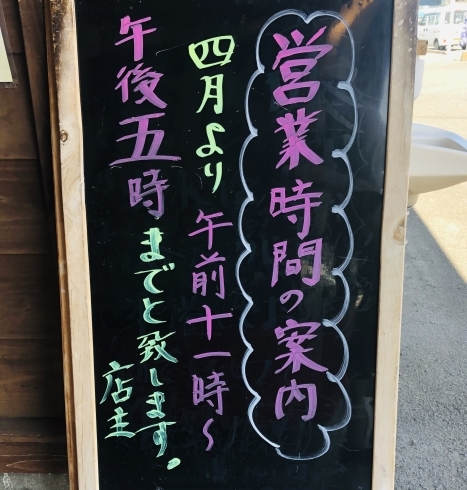 営業時間の案内
四月より午前十一時~
午後五時までと致します.
店主